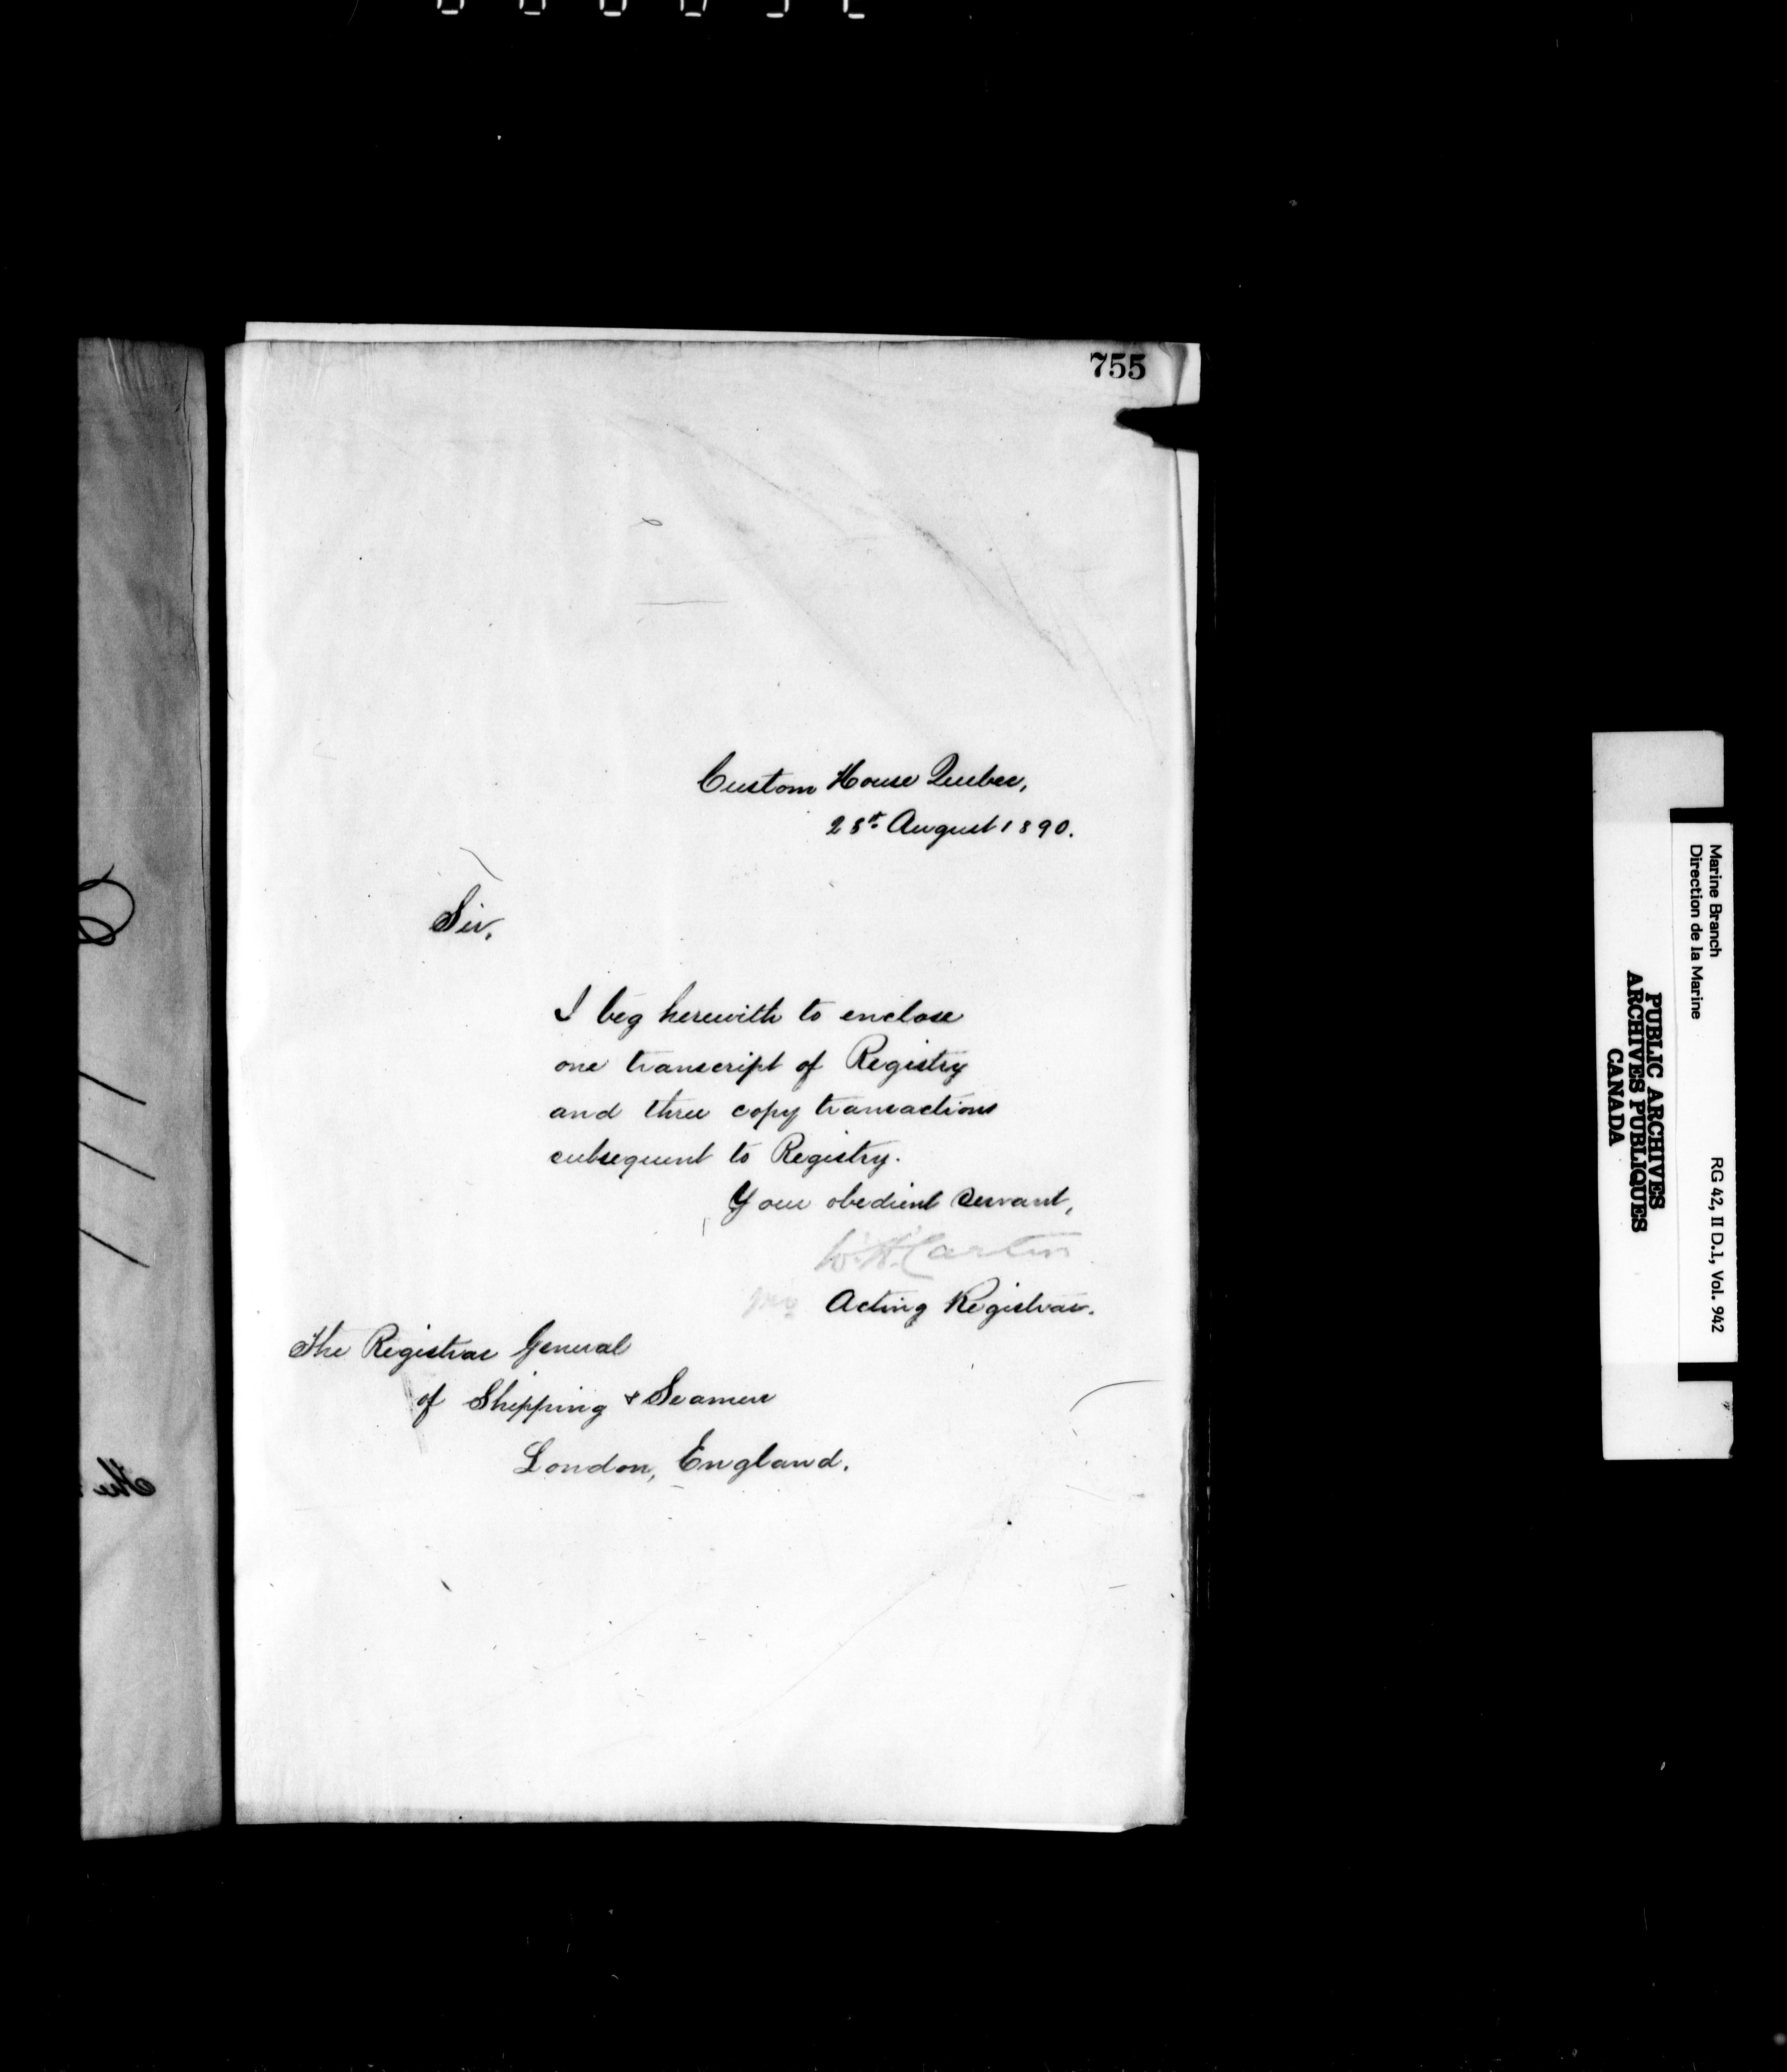 755
Custom House Quebec,
25th August 1890.
Sir,
I beg herewith to enclose
one transcript of Registry
and three copy transactions
subsequent to Registry.
Your obedient Servant,
W. H. Carter
pro Acting Registrar.
The Registrar General
of Shipping & Seamen
London, England.
The
Marine Branch
Direction de la Marine
RG 42, II D.1, Vol. 942
PUBLIC ARCHIVES
ARCHIVES PUBLIQUES
CANADA